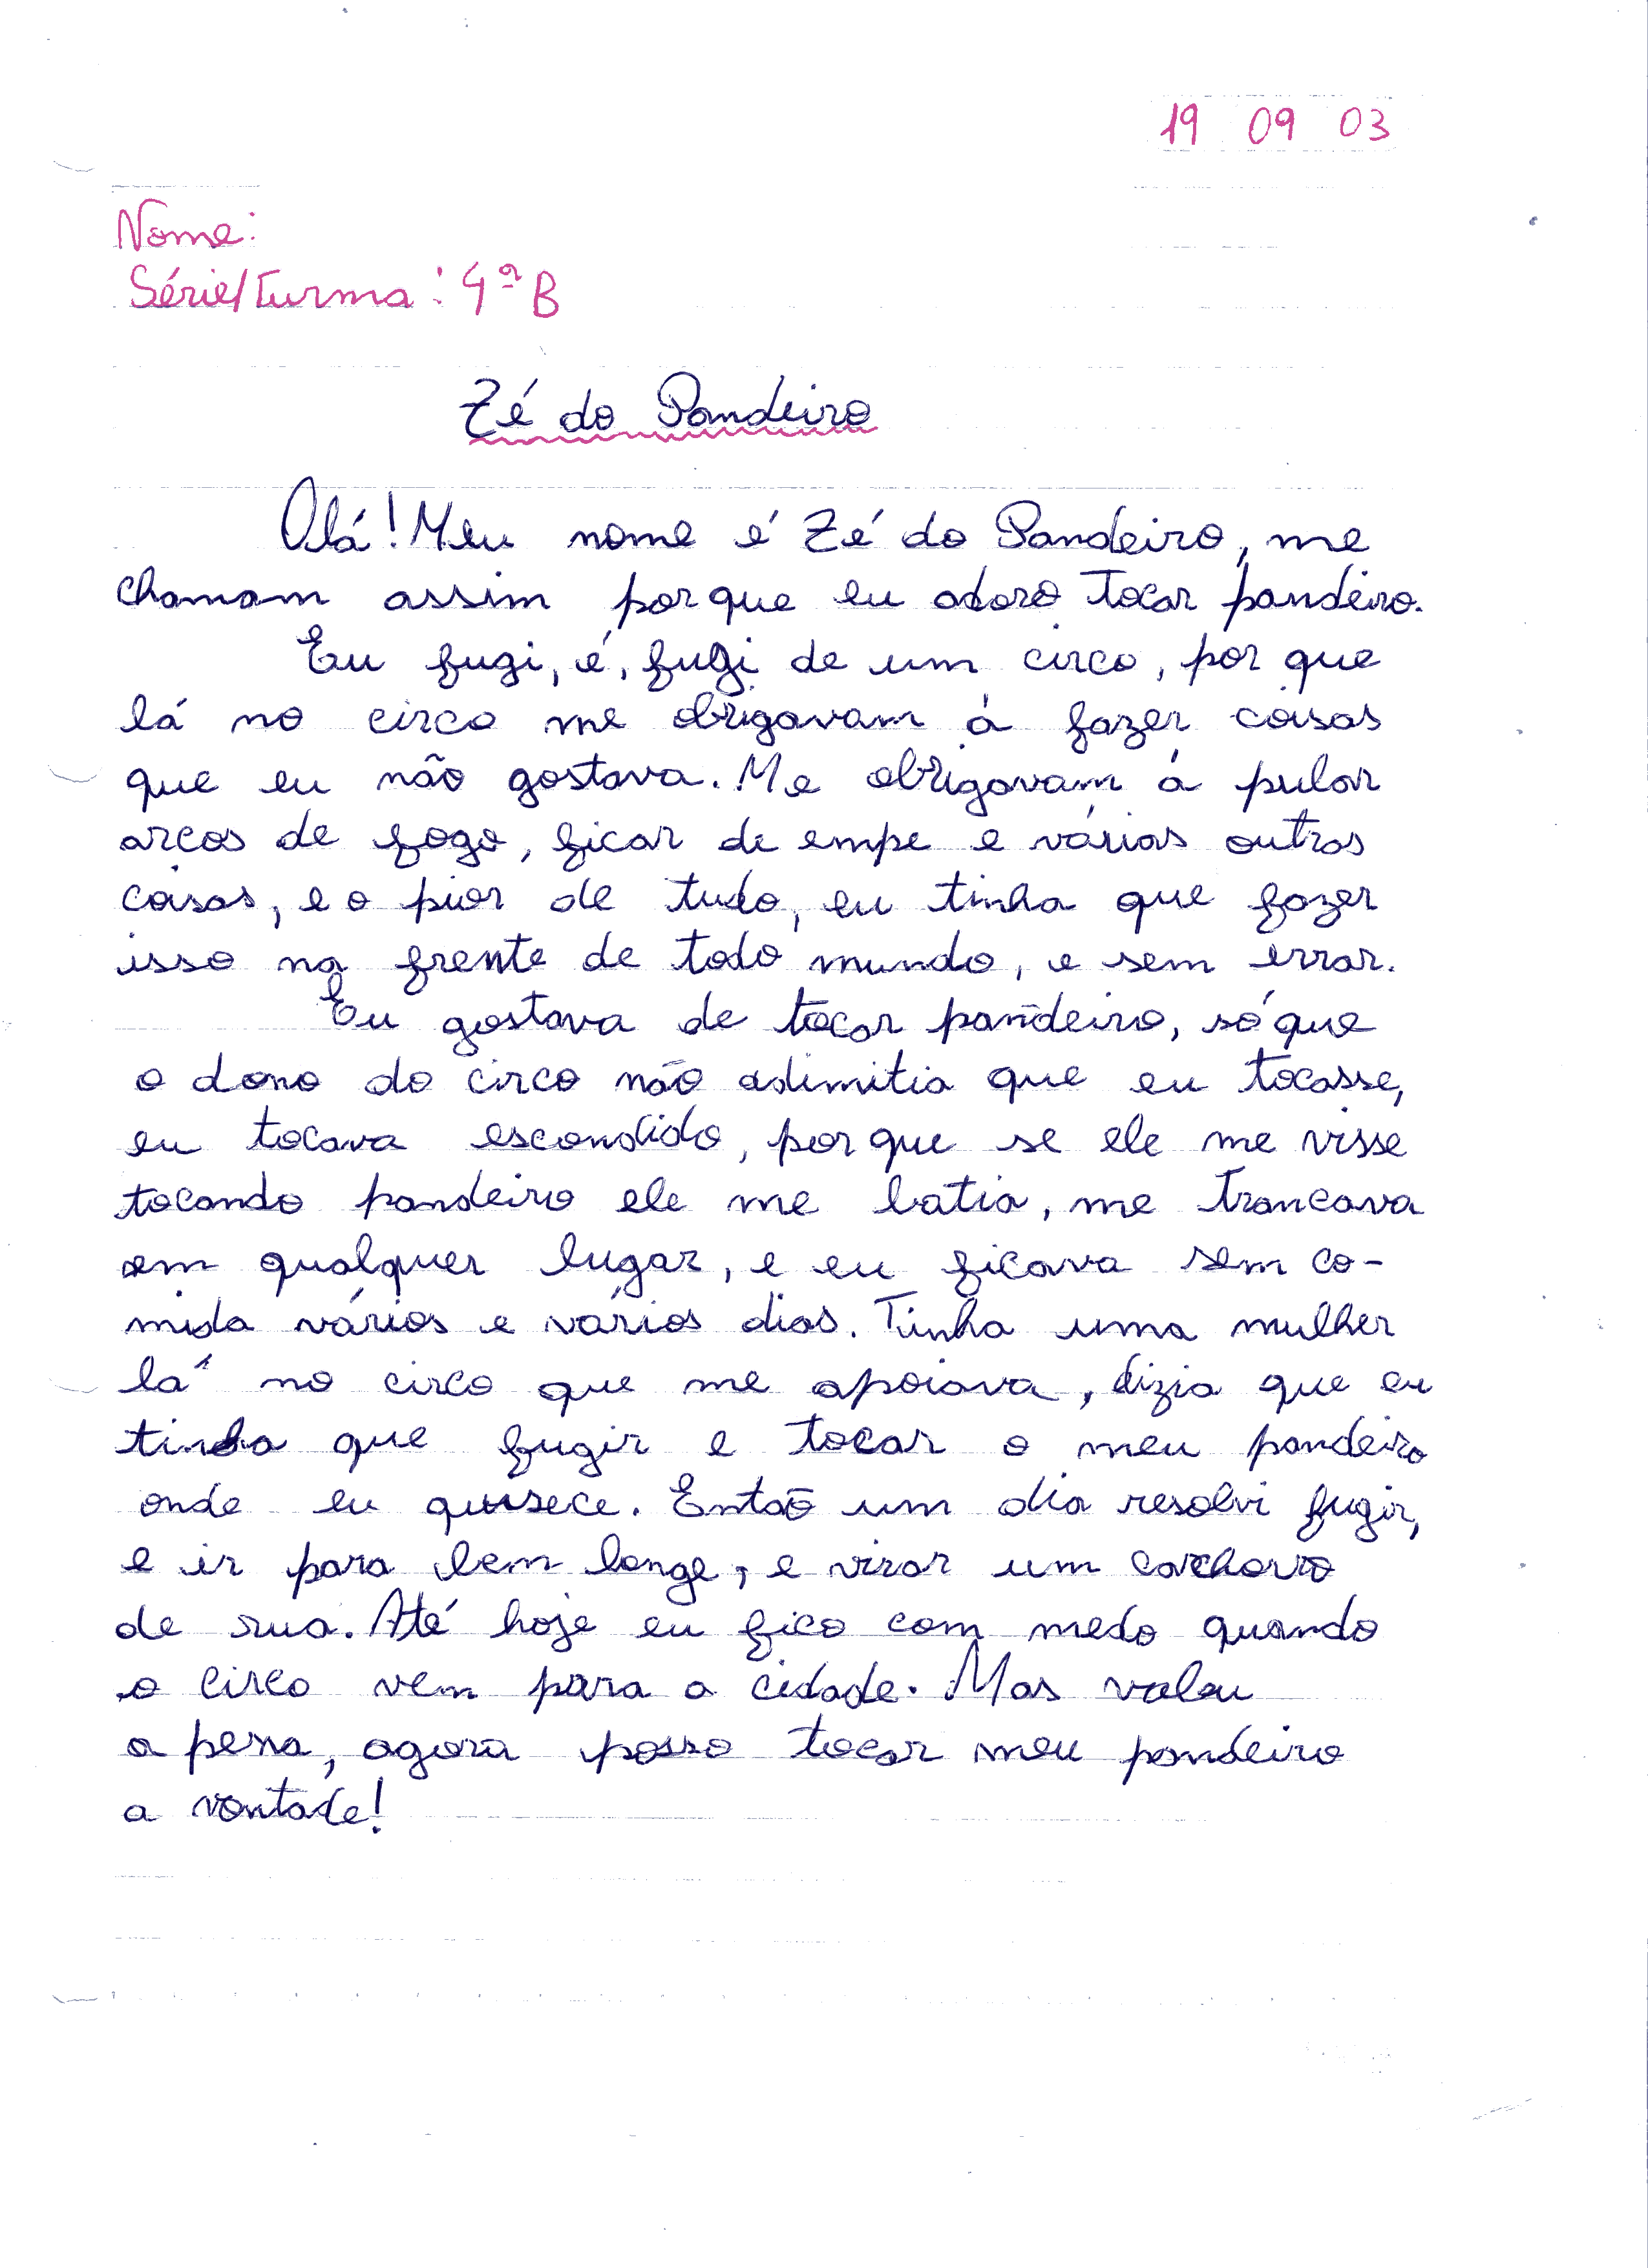 19 09 03
Nome:
Série/Turma: 4ª B
Zé do Pandeiro
Olá! Meu nome é Zé do Pandeiro, me
chamam assim por que eu adoro tocar pandeiro.
Eu fugi, é, fugi de um circo, por que
lá no circo me obrigavam á fazer coisas
que eu não gostava. Me obrigavam á pular
arcos de fogo, ficar de empe e várias outras
coisas, e o pior de tudo, eu tinha que fazer
isso na frente de todo mundo, e sem errar.
Eu gostava de tocar pandeiro, só que
o dono do circo não adimitia que eu tocasse,
eu tocava escondido, por que se ele me visse
tocando pandeiro ele me batia, me trancava
em qualquer lugar, e eu ficava sem co-
mida vários e vários dias. Tinha uma mulher
lá no circo que me apoiava, dizia que eu
tinha que fugir e tocar o meu pandeiro
onde eu quisece. Então um dia resolvi fugir,
e ir para bem longe, e virar um cachorro
de rua. Até hoje eu fico com medo quando
o circo vem para a cidade. Mas valeu
a pena, agora posso tocar meu pandeiro
a vontade!